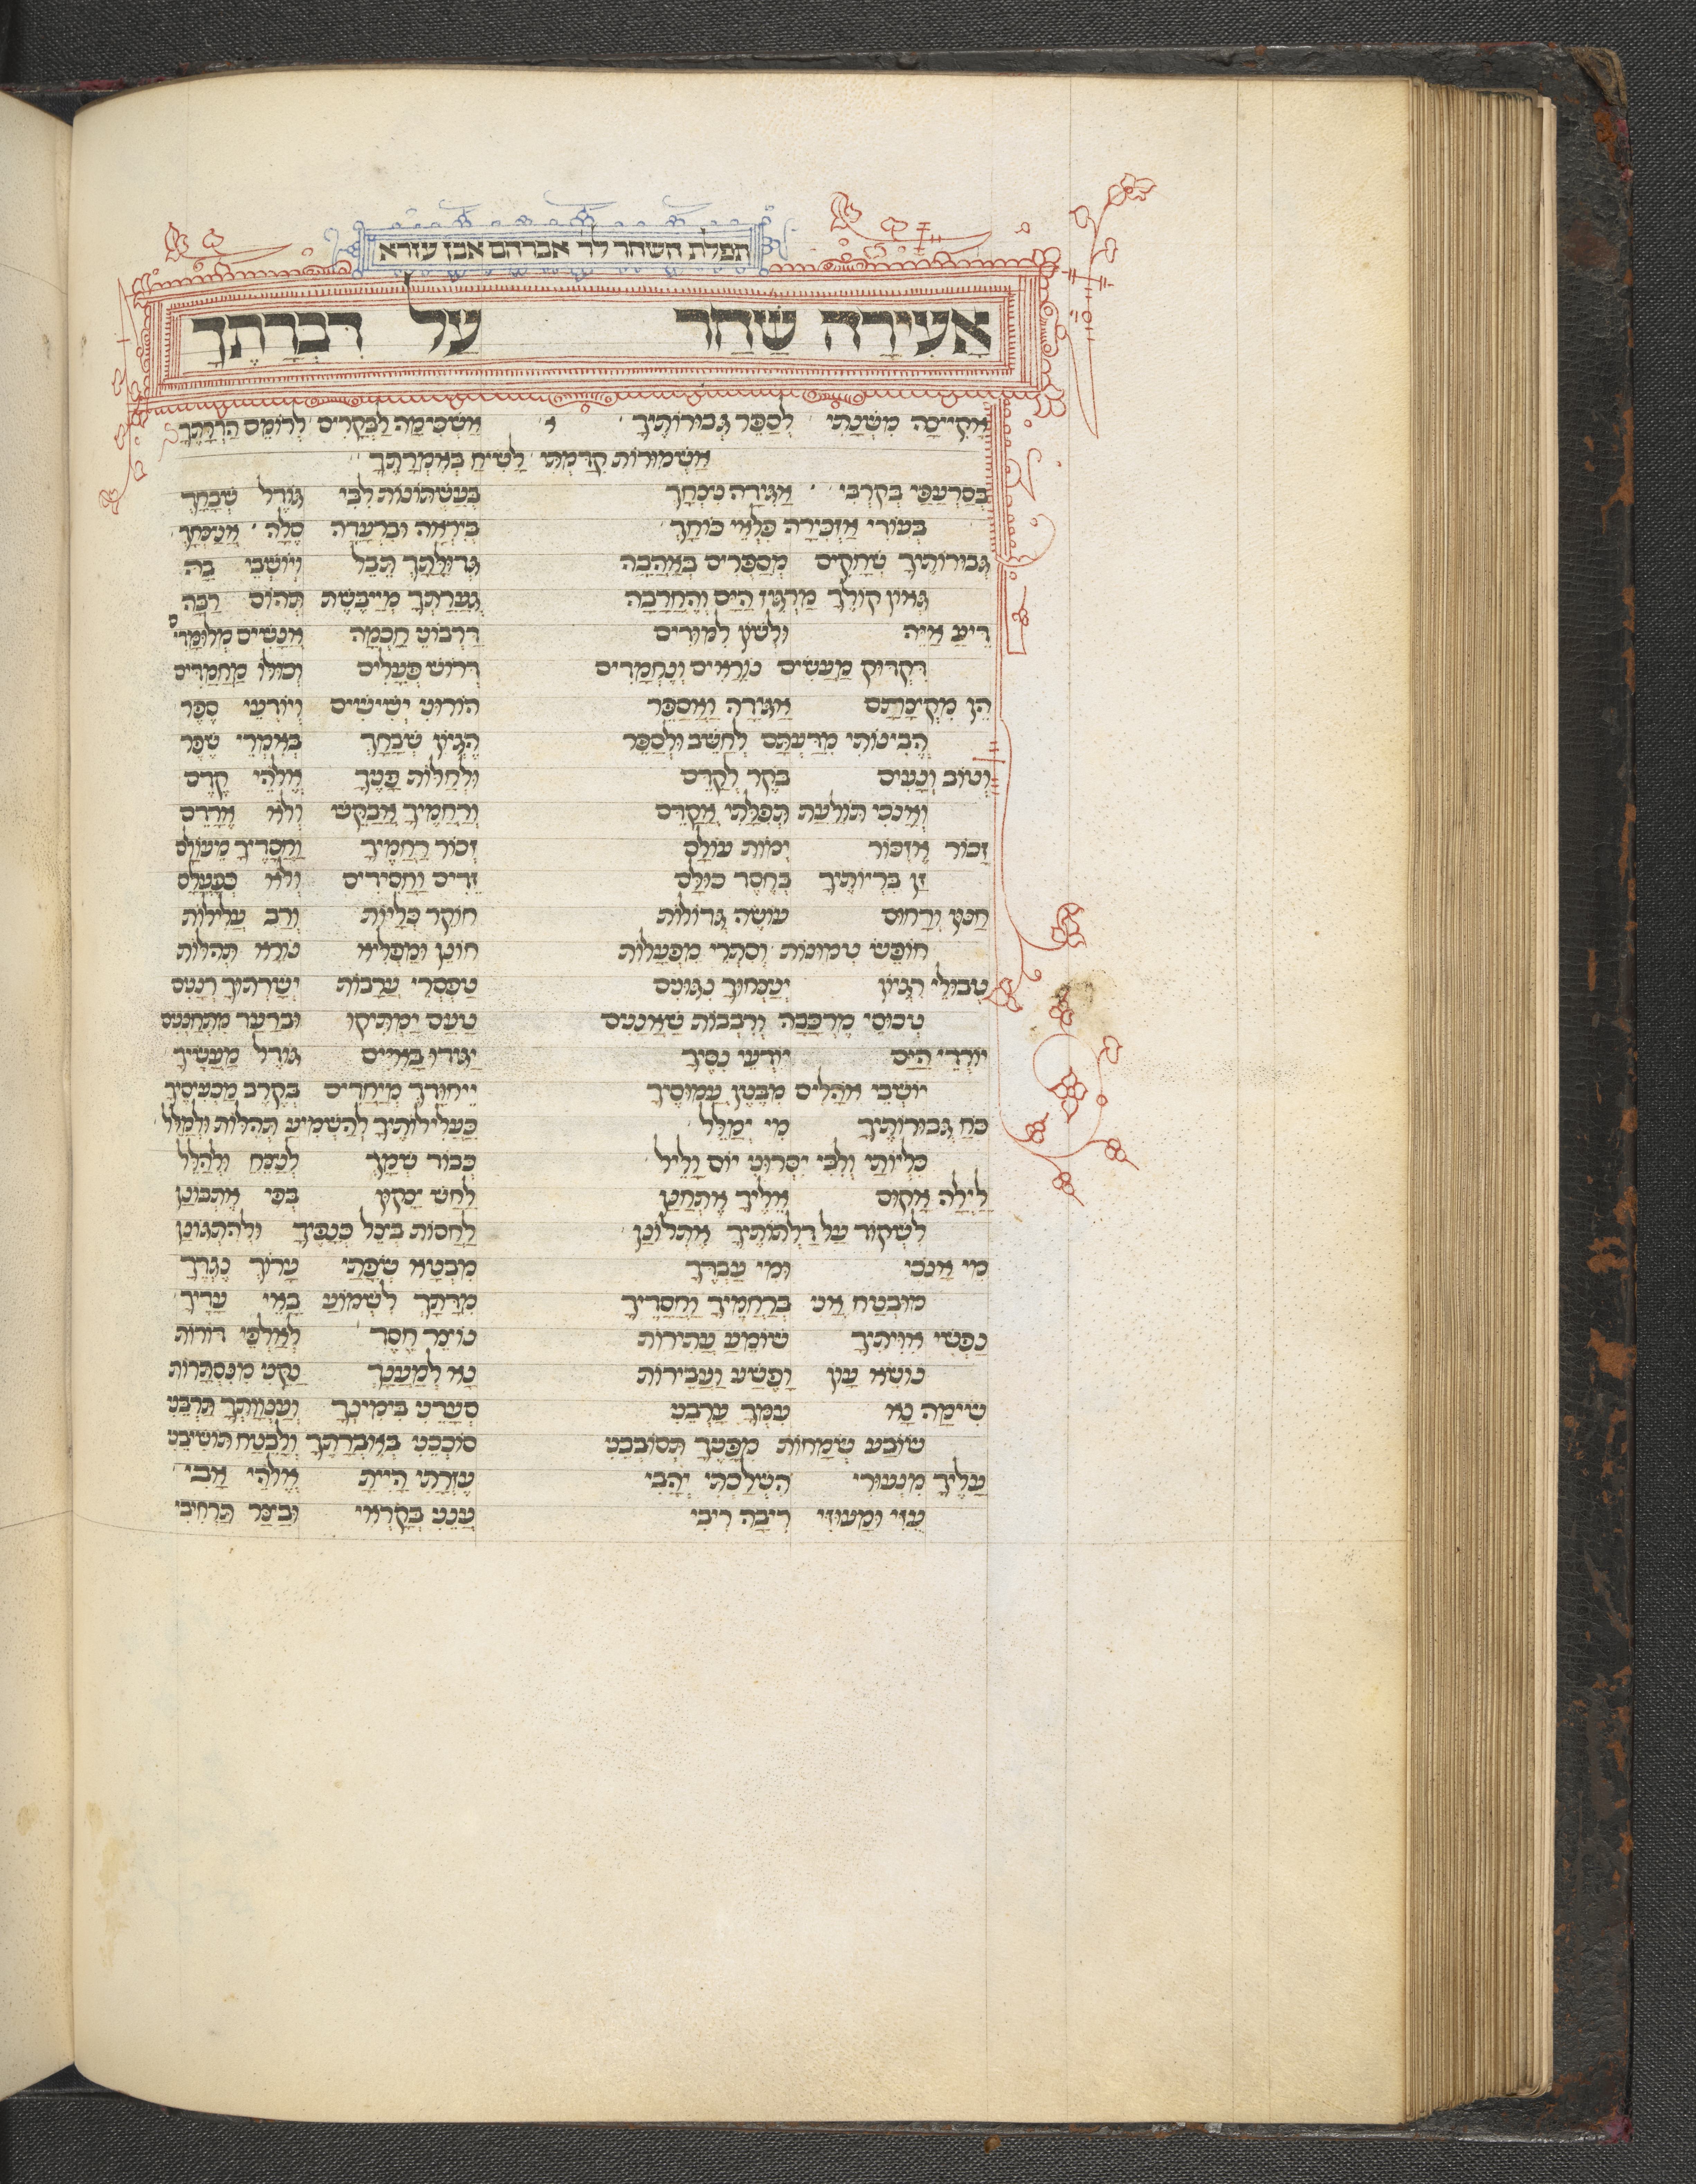 תפלת השחר לר׳ אברהם אבן עזרא
אָעִירָה שַׁחַר עַל דִּבְרָתֶךָ
אָקִיצָה מִשְּׁנָתִי לְסַפֵּר גְּבוּרוֹתֶיךָ אַשְׁכִּימָה לַבְּקָרִים לְרוֹמֵם הַדְרָתֶךָ
אַשְׁמוּרוֹת קִדַּמְתִּי לָשִׂיחַ בְּאִמְרָתֶךָ
בְּסַרְעַפַּי בְּקִרְבִּי אַגִּידָה נִסְךָ בְּעֶשְׁתּוֹנוֹת לִבִּי גּוֹדֶל שְׁבָחֶךָ
בְּעוֹדִי אַזְכִּירָה פִּלְאֵי כּוֹחֶךָ בְּיִרְאָה וּבִרְעָדָה סֶלָה
גְּבוּרוֹתֶיךָ שְׁחָקִים מְסַפְּרִים בְּאַהֲבָה גְּדוּלָּתְךָ תֵּבֵל וְיוֹשְׁבֵי בָהּ
גְּאוֹן קוֹלְךָ מַרְגִּיז הַיָּם וְהֶחֳרָבָה גַּעֲרָתְךָ מְיַיבֶּשֶׁת תְּהוֹם רַבָּה
דֵּיעַ אַיֵּה וּלְשׁוֹן לִמּוּדִים חָכְמָה אֲנָשִׁים
דִּקְדּוּק מַעֲשִׂים נוֹרָאִים וְנֶחֱמָדִים דְּרוֹשׁ פְּעָלִים וְכוּלּוֹ מַחֲמַדִּים
הֵן מִקִּיבֲרָתָם אַגִּידָה וַאֲסַפֵּר הוֹדוּנִי יְשִׁישִׁים וְיוֹדְעֵי סֵפֶר
הֲבִינוֹתִי מִדַּעְתָּם לְחַשֵּׁב וּלְסַפֵּר הֶגְיוֹן שִׁבְחֲךָ בְּאִמְרֵי שֶׁפֶר
וְטוֹב וְנָעִים בֹּקֶר לְקַדֵּם וּלְחַלּוֹת פָּנֶיךָ אֱלֹהֵי קֶדֶם
וְאָנֹכִי תּוֹלַעַת תְּפִלָּתִי אֲקַדֵּם וְרַחֲמֶיךָ אֲבַקֵּשׁ וְלֹא אֵרָדֵם
זָכוֹר אֶזְכּוֹר יְמוֹת עוֹלָם זְכוֹר רַחֲמֶיךָ וַחֲסָדֶיךָ מֵעוֹלָם
זָן בְּרִיּוֹתֶיךָ בְּחֶסֶד כּוּלָּם זֵדִים וַחֲסִידִים וְלֹא כְּפָעֳלָם
חַנּוּן וְרַחוּם עוֹשֶׂה גְדוֹלוֹת חוֹקֵר כְּלָיוֹת וְרַב עֲלִילוֹת
חוֹפֵשׂ טְמוּנוֹת וְסִתְרֵי מִפְעָלוֹת חוֹנֵן וּמַפְלִיא נוֹרָא תְהִלּוֹת
טְבוּלֵי הִגָּיוֹן יְנַצְּחוּךָ נִגּוּנִים טַפְסְרֵי עֲרָבוֹת יְשָׁרְתוּךָ רְנָנִים
טְכוּסֵי מֶרְכָּבָה וְרִבְבוֹת שַׁאֲנַנִּים טַעַם יַמְתִּיקוּ
יוֹרְדֵי הַיָּם יוֹדְעֵי נִסֶּיךָ יַגִּידוּ בָּאִיִּים גּוֹדֶל מַעֲשֶׂיךָ
יוֹשְׁבֵי אֹהָלִים מִבֶּטֶן עֲמוּסֶיךָ יִיחוּדְךָ מְיַחֲדִים בְּקֶרֶב מַכְעִיסֶיךָ
כֹּחַ גְּבוּרוֹתֶיךָ מִי יְמַלֵּל כַּעֲלִילוֹתֶיךָ לְהַשְׁמִיעַ תְּהִלּוֹת וּלְמַלֵּל
כִּלְיוֹתַי וְלִבִּי יִסְּרוּנִי יוֹם וָלַיִל כְּבוֹד שִׁמְךָ לְנַצֵּחַ וּלְהַלֵּל
לַיְלָה אָקוּם אֵלֶיךָ אֶתְחַנַּן לַחַשׁ יִצְקוּן בְּפִי אֶתְבּוֹנַן
לִשְׁקוֹד עַל דַּלְתוֹתֶיךָ אֶתְלוֹנַן לַחֲסוֹת בְּצֵל כְּנָפֶיךָ וּלְהִתְגּוֹנַן
מִי אָנֹכִי וּמִי עַבְדֶּךָ מִבְטָא שְׂפָתַי עָרוֹךְ נֶגְדֶּךָ
מוּבְטָח אֲנִי בְּרַחֲמֶיךָ וַחֲסָדֶיךָ מִדָּתְךָ לִשְׁמוֹעַ בָּאֵי עָדֶיךָ
נַפְשִׁי אִוִּיתִיךָ שׁוֹמֵעַ עֲתִירוֹת נוֹצֵר חֶסֶד לְאַלְפֵי דוֹרוֹת
נוֹשֵׂא עָוֹן וָפֶשַׁע וַעֲבֵירוֹת נָא לְמַעֲנָךְ נַקֵּנִי מִנִּסְתָּרוֹת
שִׂימָה נָא עִמְּךָ עָרְבֵנִי סְעָדֵנִי בִּימִינְךָ וְעַנְוָתְךָ תַּרְבֵּנִי
שׂוֹבַע שְׂמָחוֹת מִפָּנֶיךָ תְּסוֹבְבֵנִי סוֹכְכֵנִי בְּאֶבְרָתֶךָ וְלָבֶטַח תּוֹשִׁיבֵנִי
עָלֶיךָ מִנְּעוּרַי הִשְׁלַכְתִּי יְהָבִי עֶזְרָתִי הָיִיתָ אֱלֹהֵי אָבִי
עֻזִּי וּמָעוּזִּי רִיבָה רִיבִי עֲנֵנִי בְּקָרְאִי וּבַצַּר תַּרְחִיבִי